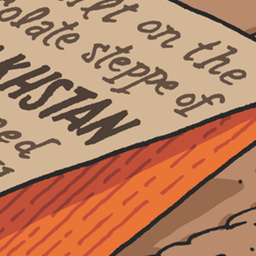 ilt on the
olate steppe of
KHSTAN
ed